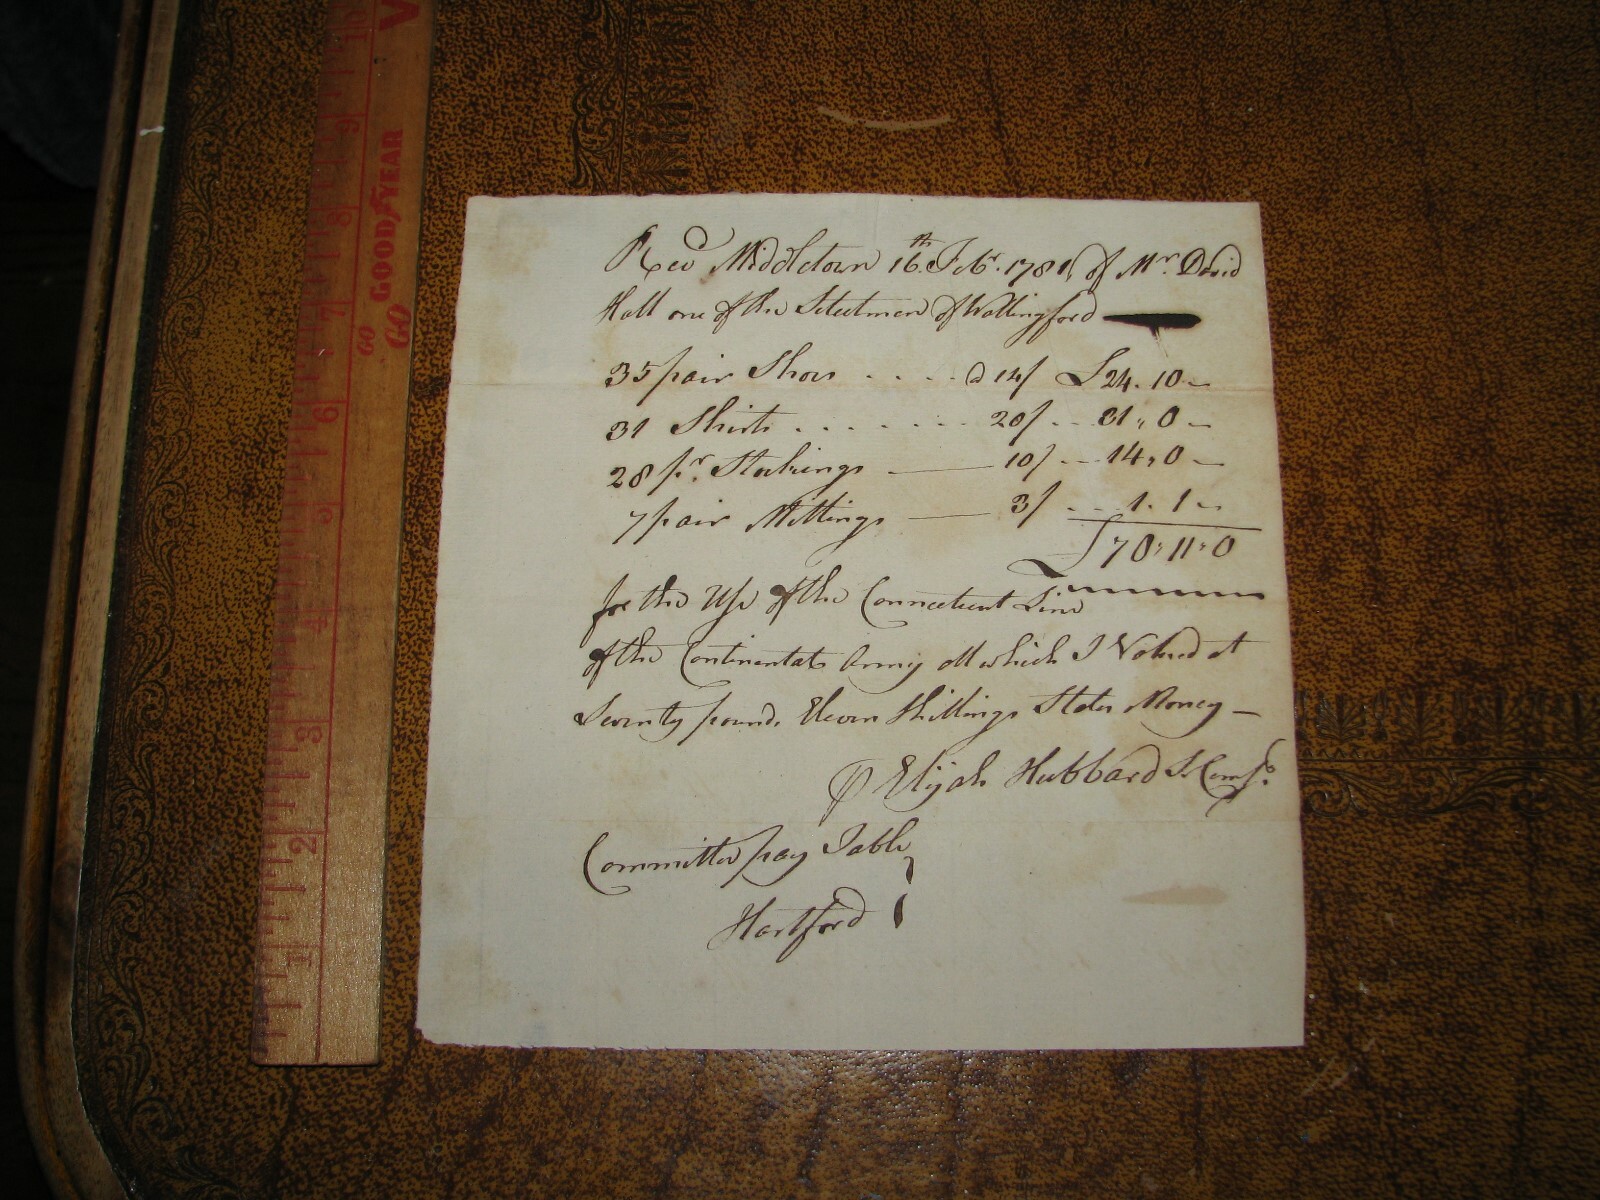 Recd Middletown 16th Febr. 1781, of Mr. David
Hall one of the Selectmen of Wallingford
35 pair Shoes . . . . @ 14/ £24. 10 -
31 Shirts . . . . . . . 20/ . . 31 " 0 -
28 pr. Stockings — 10/ . . 14 " 0 -
7 pair Mittings — 3/ . . . 1. 1 -
£70 " 11 " 0
for the Use of the Connecticut Line
of the Continental Army all which I Valued at
Seventy pounds Eleven Shillings States Money —
P Elijah Hubbard
Committee pay Table
Hartford
GOODYEAR
GO GO
V
10
9
8
7
6
5
4
3
2
1